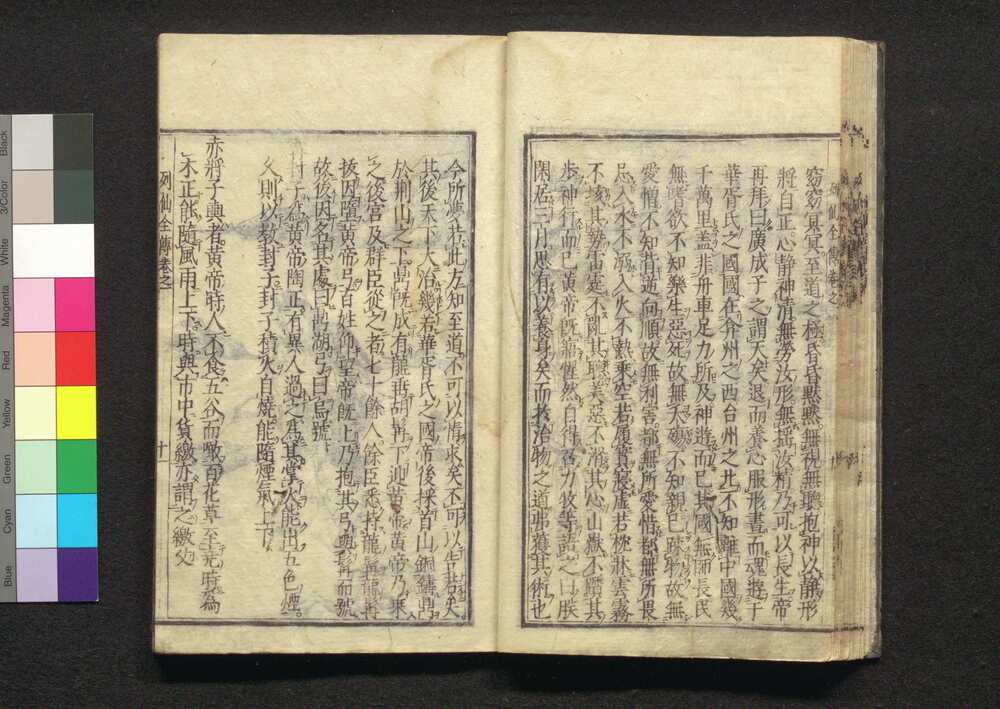 窈窈冥冥至道之極昏昏默默無視無聽抱神以靜形
將自正心靜神清無勞汝形無搖汝精乃可以長生帝
再拜曰廣成子之謂天矣退而養心服形晝而魂遊于
華胥氏之國國在弇州之西台州之北不知離中國幾
千萬里蓋非舟車足力所及神遊而已其國無師長民
無嗜欲不知樂生惡死故無夭殤不知親己疎物故無
愛憎不知背逆向順故無利害都無所愛惜都無所畏
忌入水不溺入火不熱乘空若履實寢虛若枕牀雲霧
不硋其勞雷霆不亂其聰美惡不滑其心山嶽不躓其
步神行而已黃帝既寤怡然自得召力牧等語之曰朕
閑居三月思有以養身矣而於治物之道弗獲其術也
今所夢若此方知至道不可以情求矣不可以告若矣
其後天下大治幾若華胥氏之國帝後採首山銅鑄鼎
於荊山之下鼎既成有龍垂胡髯下迎黃帝黃帝乃乘
之後宮及群臣從之者七十餘人餘臣悉持龍髯龍髯
拔因墮黃帝弓百姓仰望帝既上乃抱其弓與髯而號
故後因名其處曰鼎湖弓曰烏號
封子為黃帝陶正有異人過之為其掌火能出五色煙
久則以教封子封子積火自燒能隨煙氣上下
赤將子輿者黃帝時人不食五谷而噉百花草至堯時為
木正能隨風雨上下時與市中貨繳亦謂之繳父
列仙全傳卷之
十一
Black
3/Color
White
Magenta
Red
Yellow
Green
Cyan
Blue